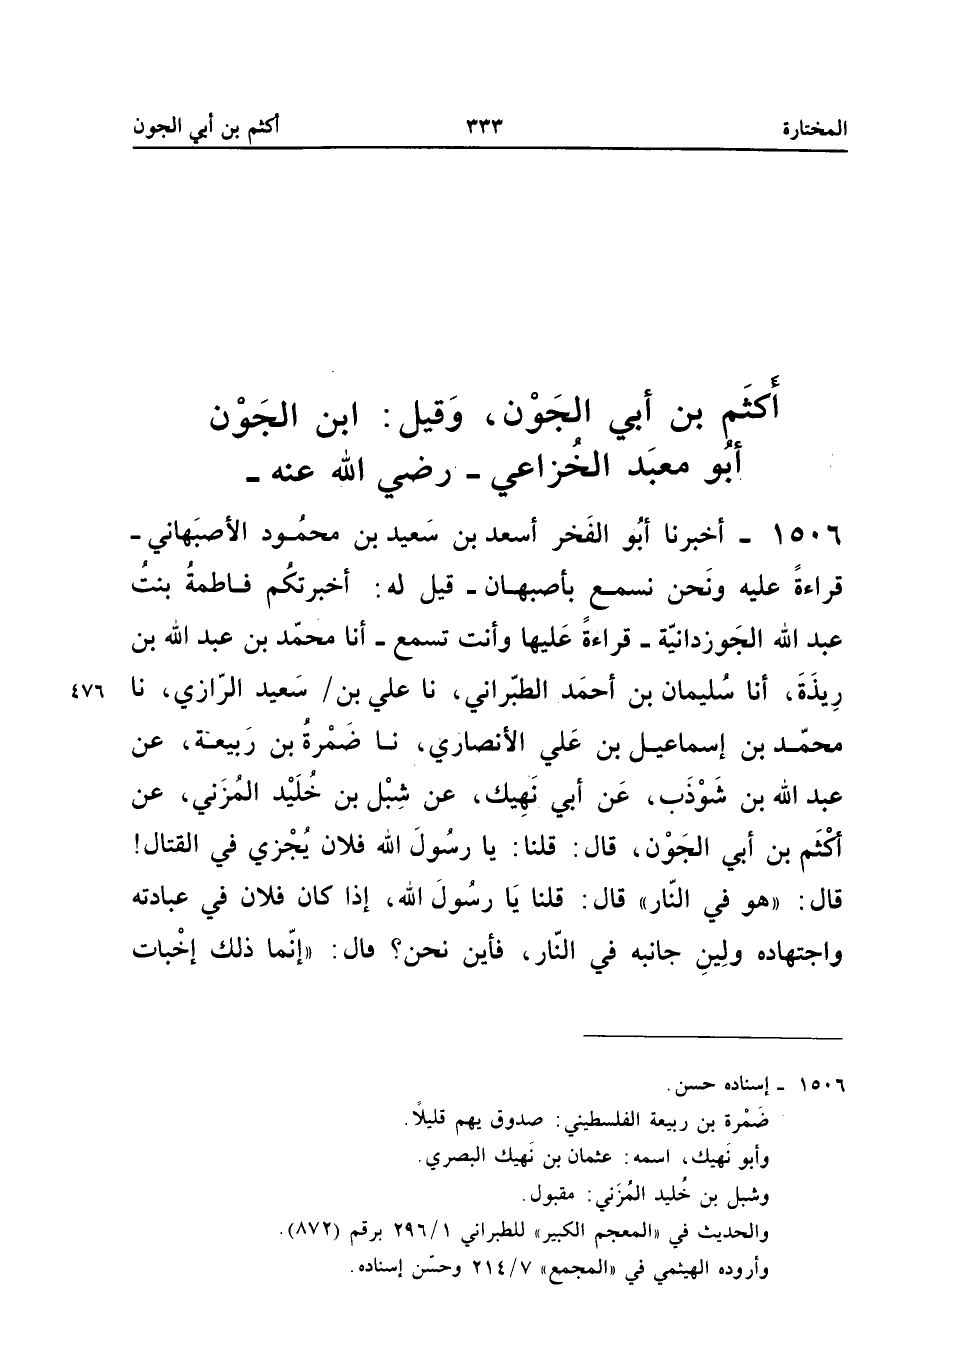 المختارة ٣٣٣ أكثم بن أبي الجون
أَكثَم بن أبي الجَوْن، وَقيل: ابن الجَوْن
أبُو معبَد الخُزاعي ـ رضي الله عنه ـ
١٥٠٦ ـ أخبرنا أبُو الفَخر أسعد بن سَعيد بن محمُـود الأصبَهاني ـ
قراءةً عليه ونَحن نسمـع بأصبهـان ـ قيل له: أخبرتكُم فـاطمةُ بنتُ
عبد الله الجَوزدانيّة ـ قراءةً عَليها وأنت تسمع ـ أنا محمّد بن عبد الله بن
رِيذَةَ، أنا سُليمان بن أحمَد الطبّراني، نا علي بن/ سَعيد الرّازي، نا ٤٧٦
محمّـد بن إسماعيـل بن عَلي الأنصاري، نـا ضَمْرةُ بن رَبيعـة، عن
عبد الله بن شَوْذَب، عَن أبي نَهِيك، عن شِبْل بن خُلَيْد المُزَني، عن
أكْثَم بن أبي الجَوْن، قال: قلنا: يا رسُولَ الله فلان يُجْزي في القتال!
قال: «هو في النّار» قال: قلنا يَا رسُولَ الله، إذا كان فلان في عبادته
واجتهاده ولِينِ جانبه في النّار، فأين نحن؟ قال: «إنّما ذلك إخْبات
١٥٠٦ ـ إسناده حسن.
ضَمْرة بن ربيعة الفلسطيني: صدوق يهم قليلاً.
وأبو نَهيك، اسمه: عثمان بن نَهيك البصري.
وشبل بن خُليد المُزَني: مقبول.
والحديث في «المعجم الكبير» للطبراني ٢٩٦/١ برقم (٨٧٢).
وأروده الهيثمي في «المجمع» ٢١٤/٧ وحسّن إسناده.